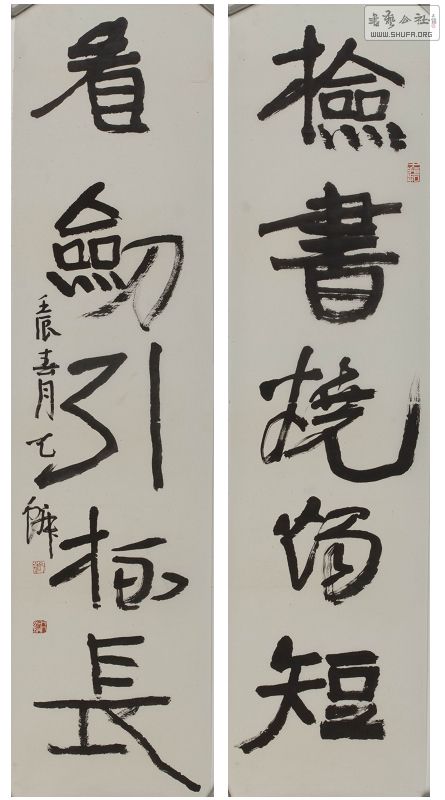 書藝公社
WWW.SHUFA.ORG
檢書燒燭短
看劍引杯長
壬辰春月